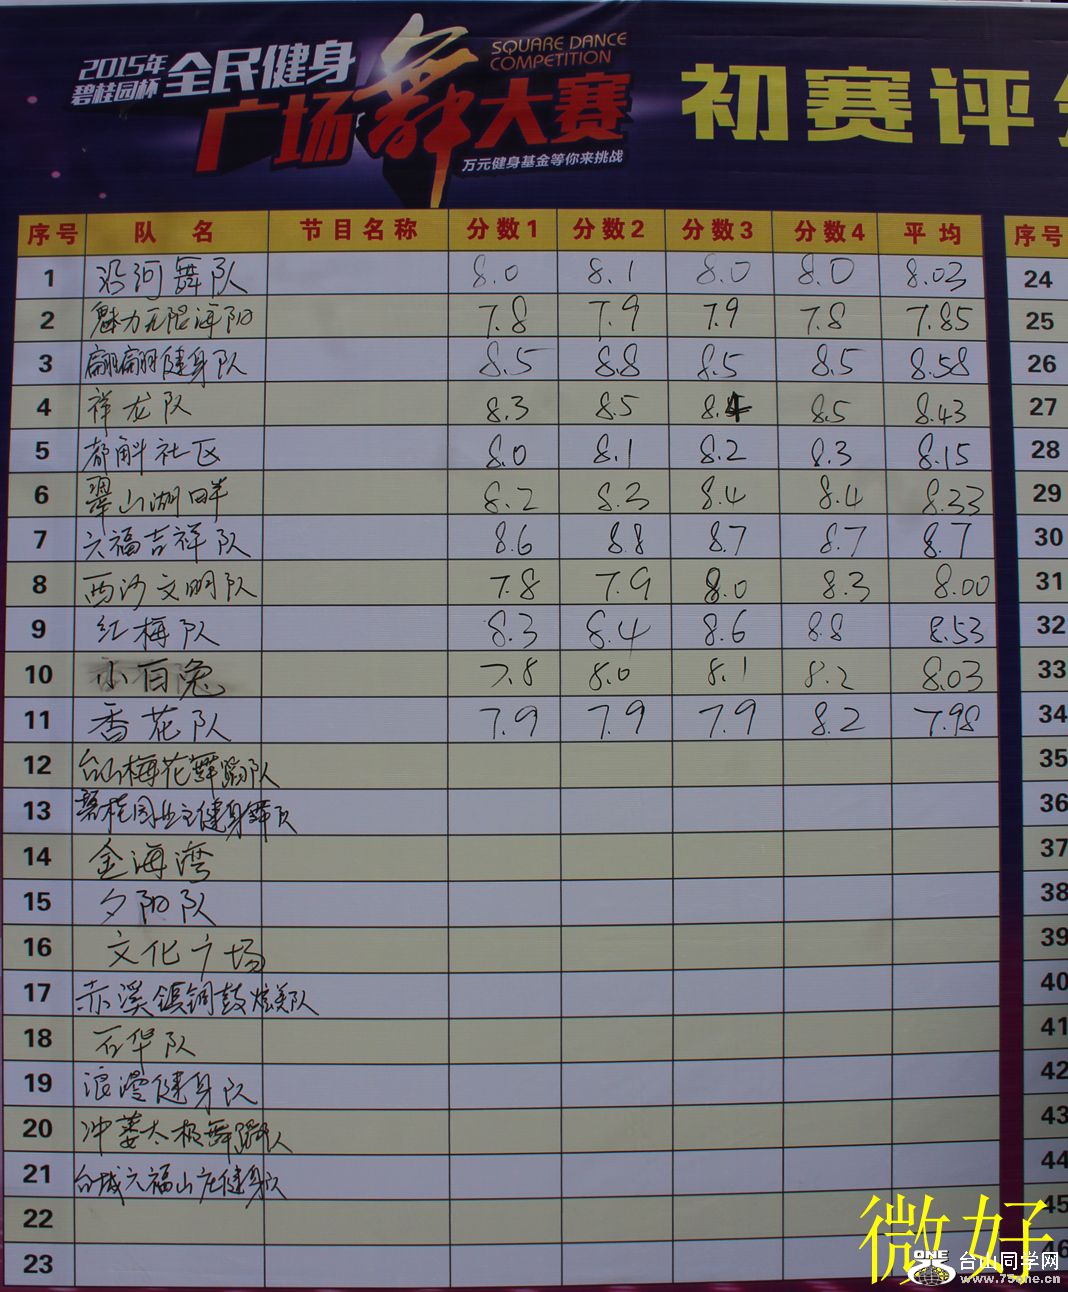 2015年
碧桂园杯
全民健身
广场舞大赛
SQUARE DANCE
COMPETITION
万元健身基金等你来挑战
初赛评分
序号 队名 节目名称 分数1 分数2 分数3 分数4 平均 序号
1 沿河舞队 8.0 8.1 8.0 8.0 8.03 24
2 魅力无限海阳 7.8 7.9 7.9 7.8 7.85 25
3 翩翩健身队 8.5 8.8 8.5 8.5 8.58 26
4 祥龙队 8.3 8.5 8.4 8.5 8.43 27
5 都斛社区 8.0 8.1 8.2 8.3 8.15 28
6 翠山湖畔 8.2 8.3 8.4 8.4 8.33 29
7 六福吉祥队 8.6 8.8 8.7 8.7 8.7 30
8 西沙文明队 7.8 7.9 8.0 8.3 8.00 31
9 红梅队 8.3 8.4 8.6 8.8 8.53 32
10 小百兔 7.8 8.0 8.1 8.2 8.03 33
11 香花队 7.9 7.9 7.9 8.2 7.98 34
12 台山梅花舞蹈队 35
13 碧桂园业主健身舞队 36
14 金海湾 37
15 夕阳队 38
16 文化广场 39
17 赤溪镇铜鼓炫美队 40
18 石华队 41
19 浪漫健身队 42
20 冲蒌太极舞蹈队 43
21 台城六福山庄健身队 44
22 45
23 46
微好
ONE
台山同学网
www.75one.cn